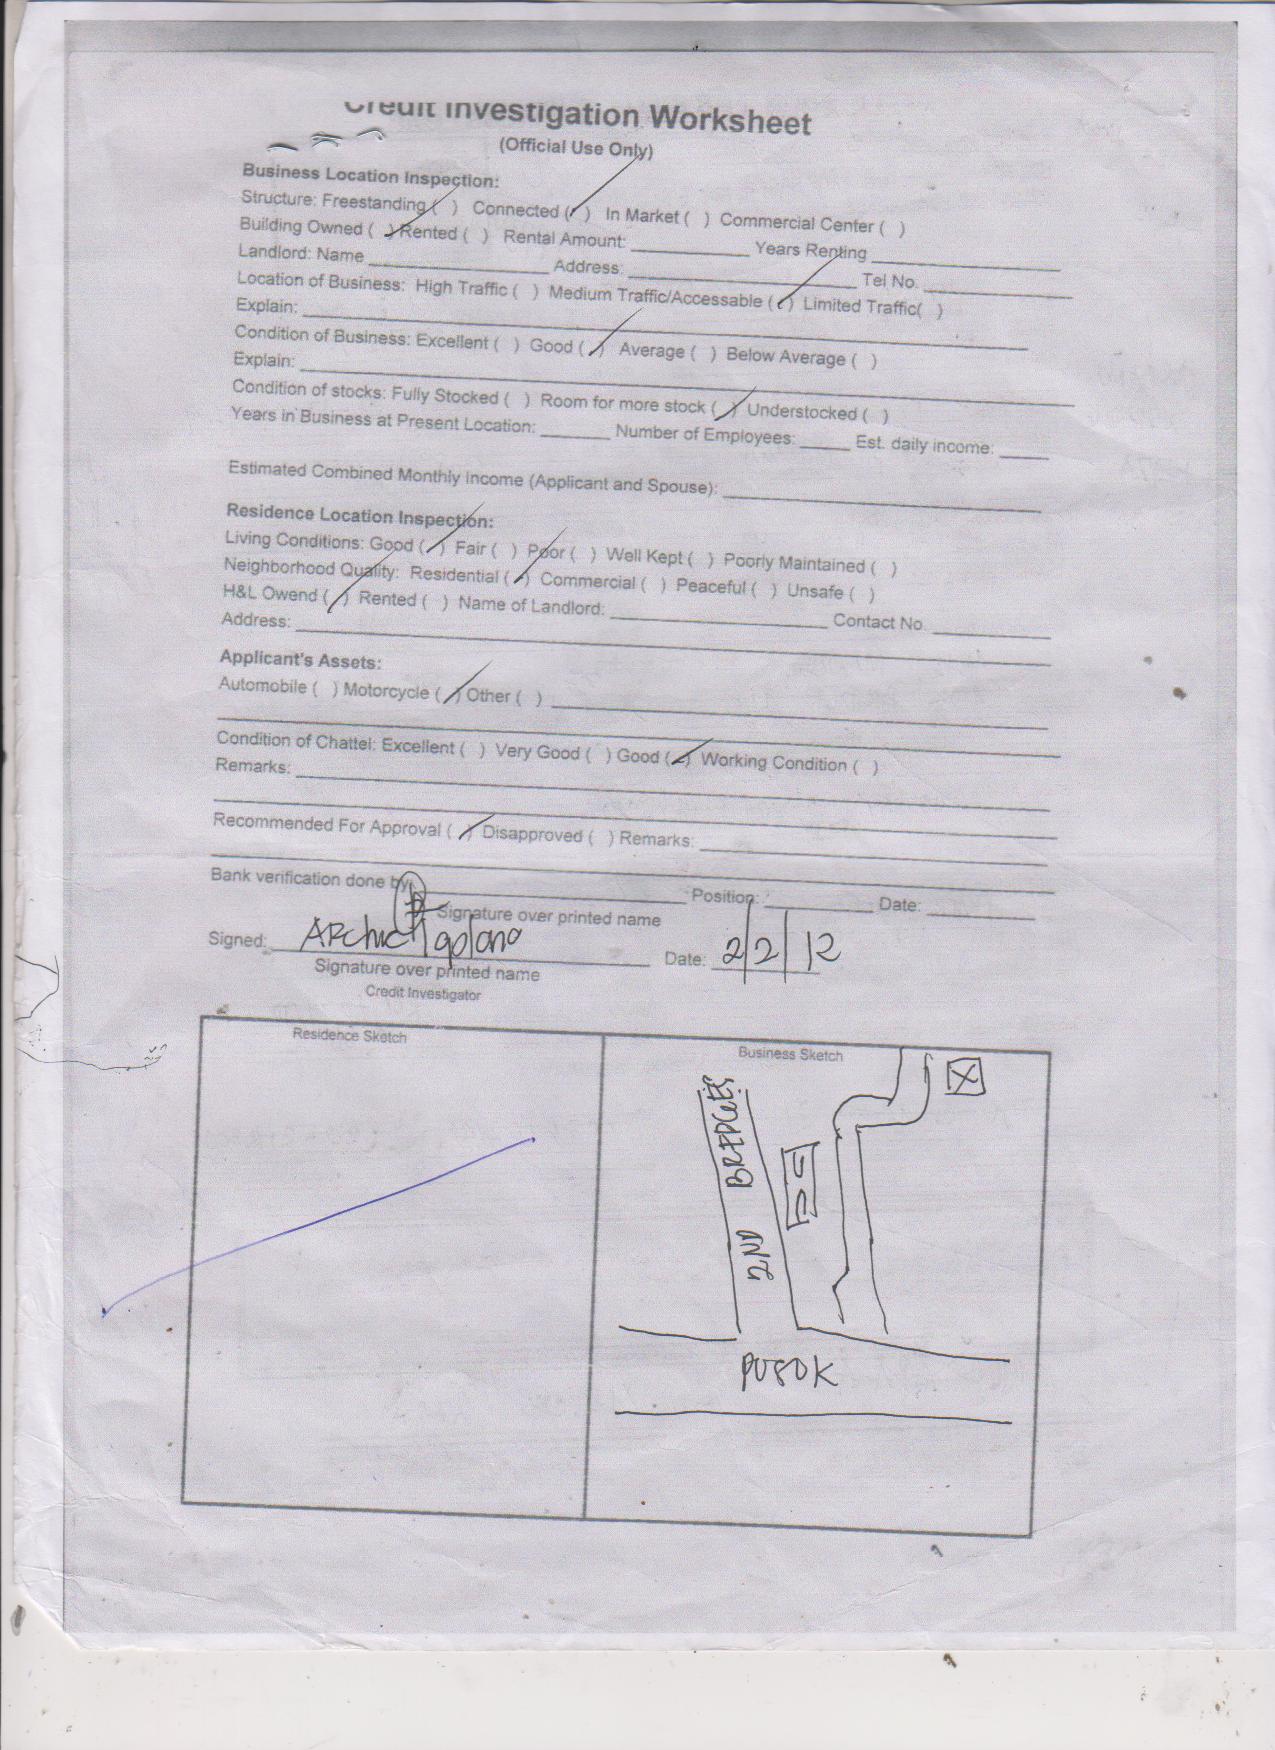 Credit Investigation Worksheet
(Official Use Only)
Business Location Inspection:
Structure: Freestanding ( ) Connected (/) In Market ( ) Commercial Center ( )
Building Owned (/) Rented ( ) Rental Amount: ________ Years Renting ________
Landlord: Name ________ Address: ________ Tel No. ________
Location of Business: High Traffic ( ) Medium Traffic/Accessable (/) Limited Traffic( )
Explain: ________
Condition of Business: Excellent ( ) Good (/) Average ( ) Below Average ( )
Explain: ________
Condition of stocks: Fully Stocked ( ) Room for more stock (/) Understocked ( )
Years in Business at Present Location: ______ Number of Employees: _____ Est. daily income: _____
Estimated Combined Monthly Income (Applicant and Spouse): ________
Residence Location Inspection:
Living Conditions: Good (/) Fair ( ) Poor ( ) Well Kept ( ) Poorly Maintained ( )
Neighborhood Quality: Residential (/) Commercial ( ) Peaceful ( ) Unsafe ( )
H&L Owend (/) Rented ( ) Name of Landlord: ________ Contact No. ________
Address: ________
Applicant's Assets:
Automobile ( ) Motorcycle (/) Other ( ) ________
Condition of Chattel: Excellent ( ) Very Good ( ) Good (/) Working Condition ( )
Remarks: ________
Recommended For Approval (/) Disapproved ( ) Remarks: ________
Bank verification done by: ________ Position: ________ Date: ________
Signature over printed name
Signed: Date: 2/2/12
Signature over printed name
Credit Investigator
Residence Sketch
Business Sketch
2ND BRIDGES
X
PUSOK